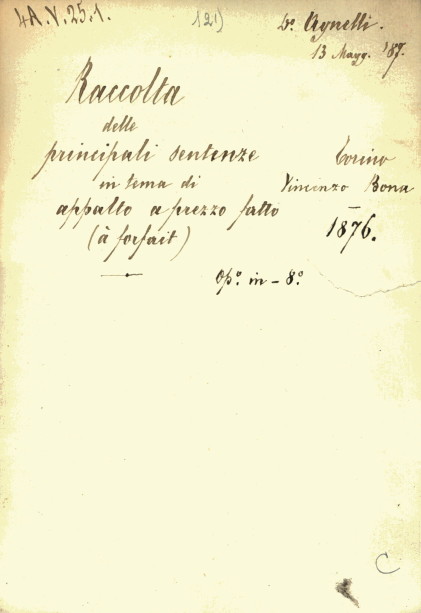 4A.V.25.1.
121)
Dr. Agnelli.
13 Magg. '87.
Raccolta
delle
principali sentenze
in tema di
appalto a prezzo fatto
(à forfait)
Torino
Vincenzo Bona
1876.
Opº. in - 8.º
C